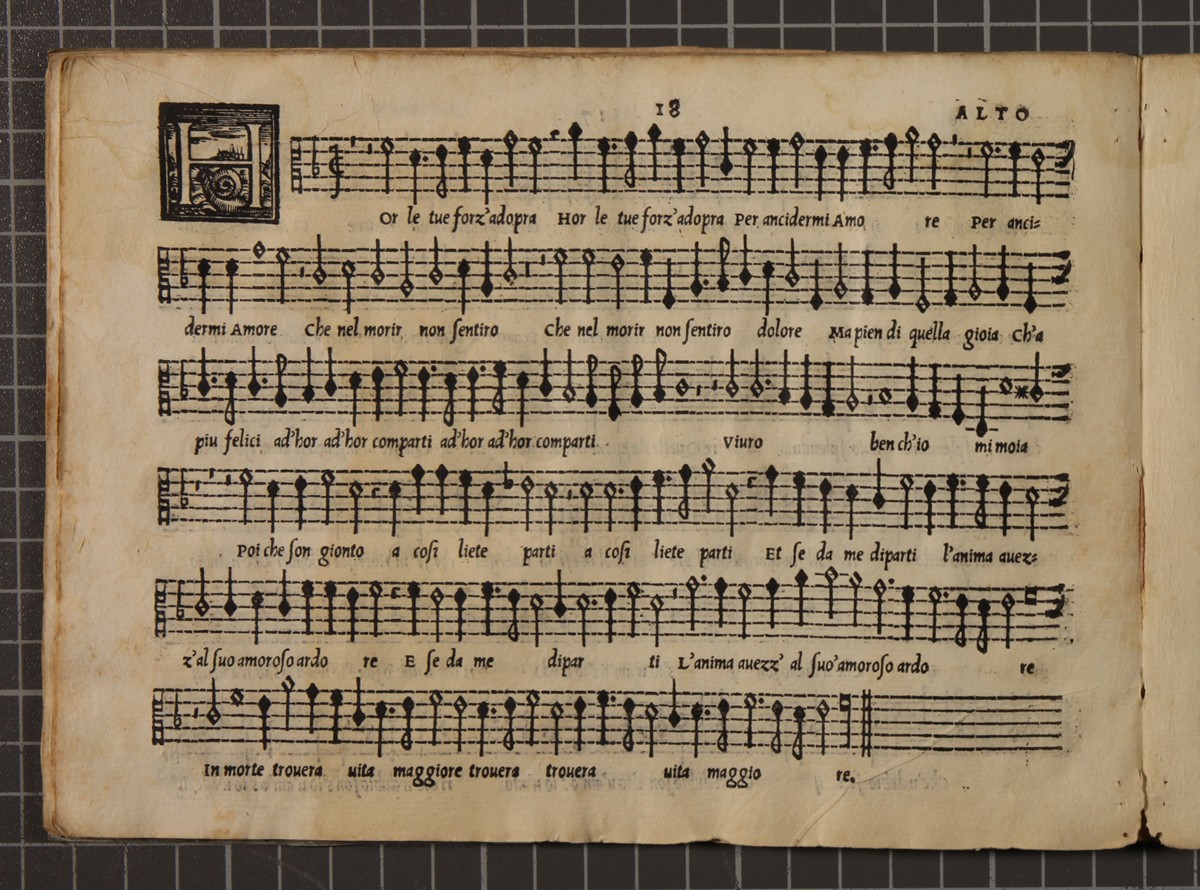 18 ALTO
HOr le tue forz'adopra Hor le tue forz'adopra Per ancidermi Amo re Per anci-
dermi Amore Che nel morir non sentiro Che nel morir non sentiro dolore Ma pien di quella gioia Ch'a
piu felici ad'hor ad'hor comparti ad'hor ad'hor comparti Viuro ben ch'io mi moia
Poi che son gionto a cosi liete parti a cosi liete parti Et se da me diparti l'anima auez-
z'al suo amoroso ardo re E se da me dipar ti L'anima auezz' al suo'amoroso ardo re
In morte trouera uita maggiore trouera trouera uita maggio re.